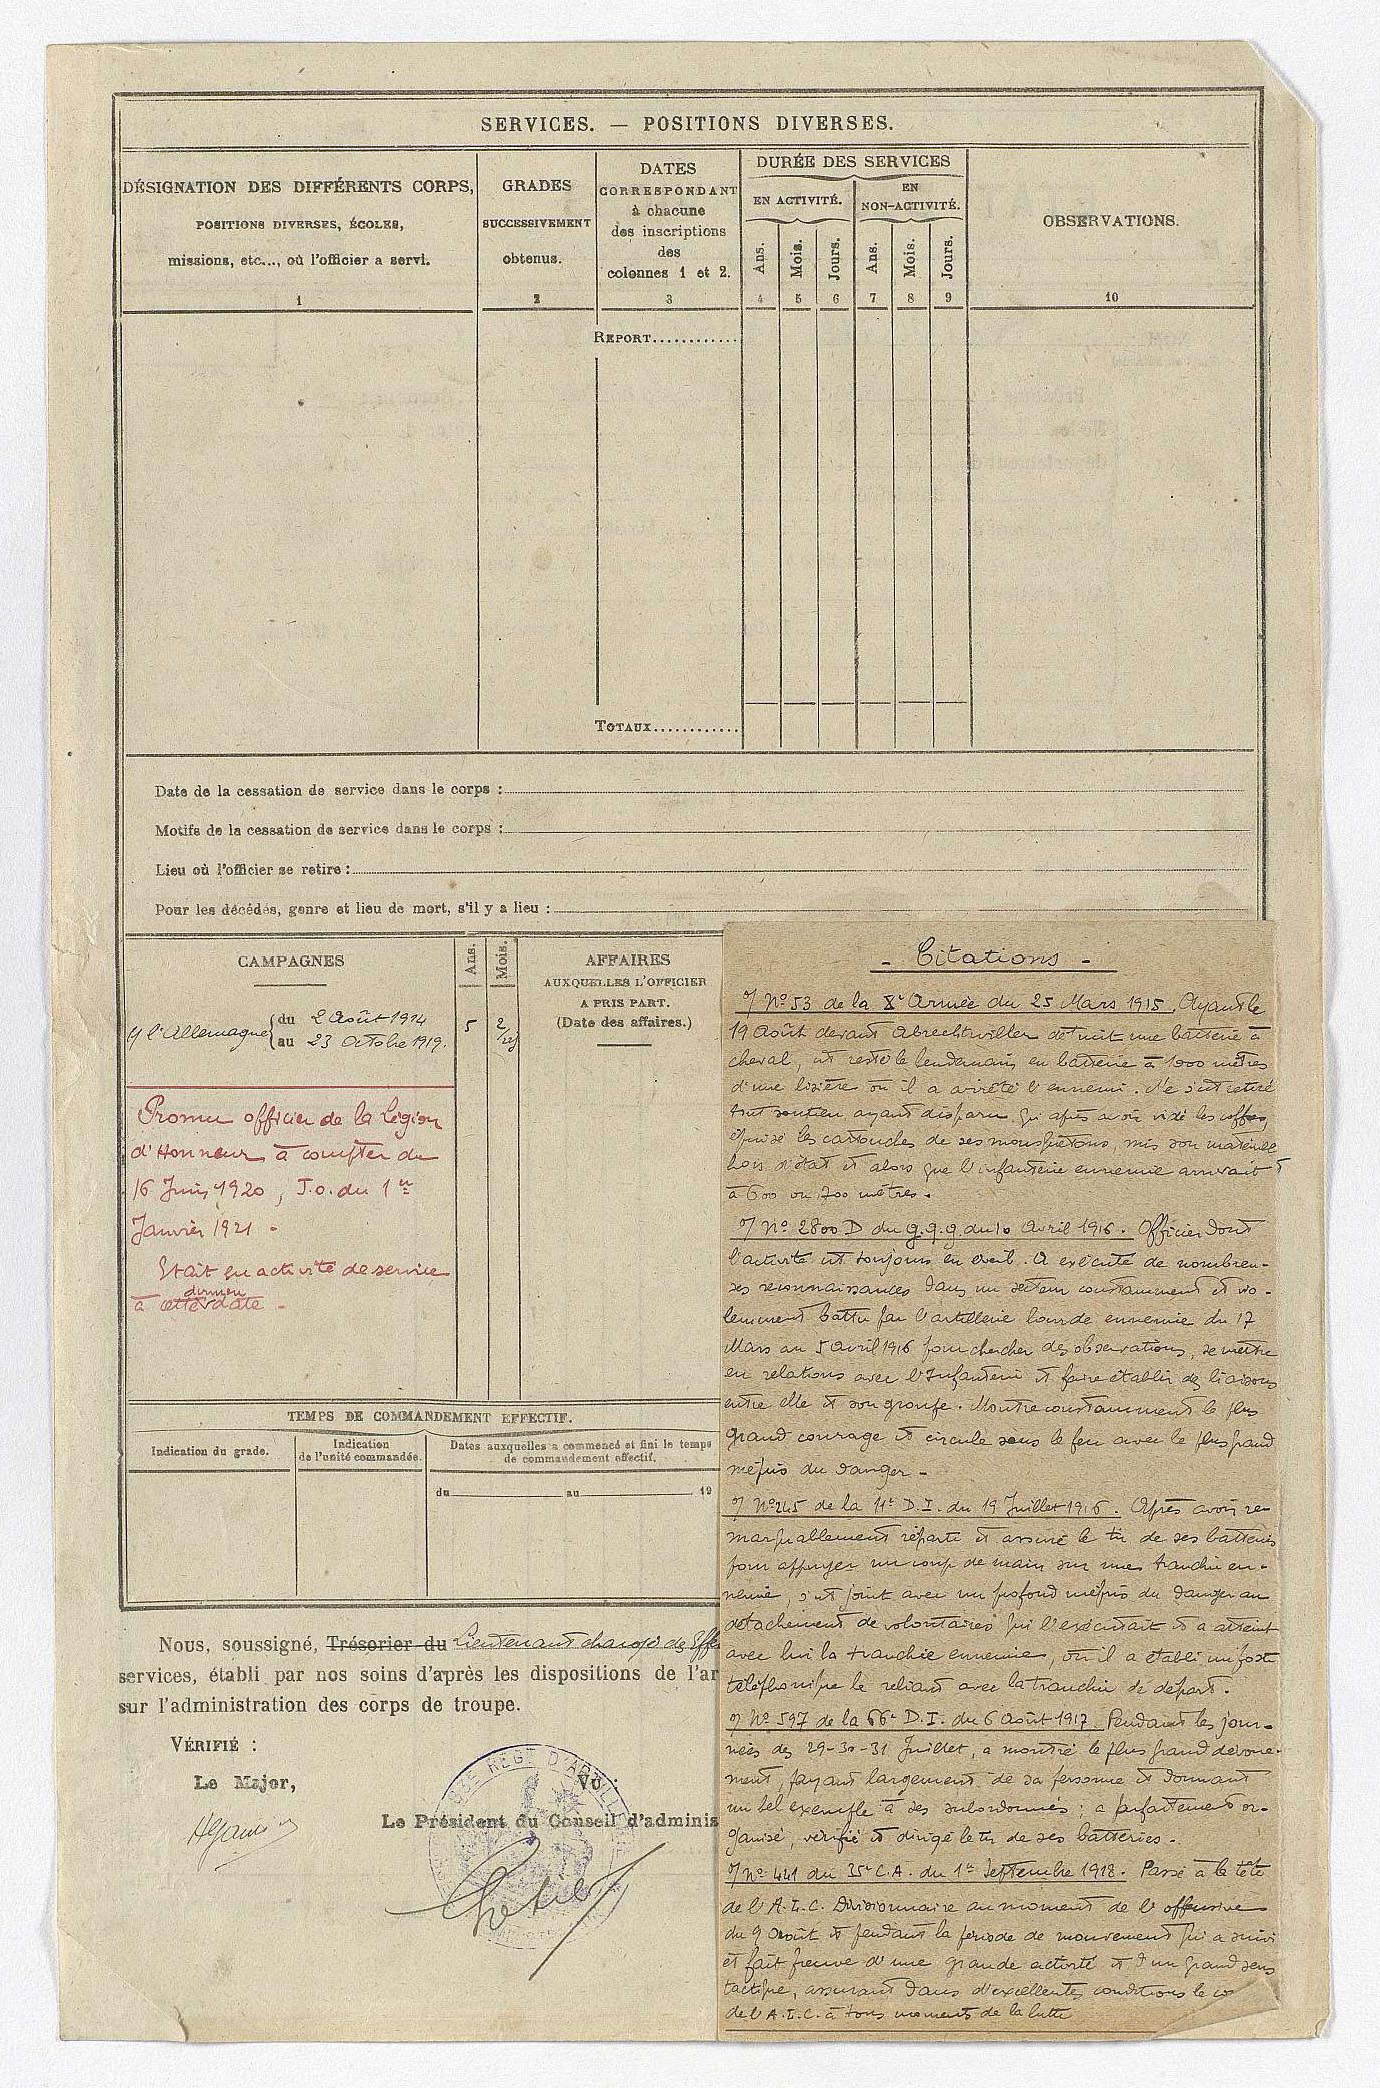 SERVICES. — POSITIONS DIVERSES.
DÉSIGNATION DES DIFFÉRENTS CORPS,
POSITIONS DIVERSES, ÉCOLES,
missions, etc..., où l'officier a servi.
1
GRADES
SUCCESSIVEMENT
obtenus.
2
DATES
CORRESPONDANT
à chacune
des inscriptions
des
colonnes 1 et 2.
3
DURÉE DES SERVICES
EN ACTIVITÉ.
EN
NON-ACTIVITÉ.
Ans.
Mois.
Jours.
Ans.
Mois.
Jours.
4 5 6 7 8 9
OBSERVATIONS.
10
REPORT............
TOTAUX............
Date de la cessation de service dans le corps :
Motifs de la cessation de service dans le corps :
Lieu où l'officier se retire :
Pour les décédés, genre et lieu de mort, s'il y a lieu :
CAMPAGNES
Ans.
Mois.
AFFAIRES
AUXQUELLES L'OFFICIER
A PRIS PART.
(Date des affaires.)
l'Allemagne du 2 Août 1914
au 23 Octobre 1919.
5 2
Promu officier de la Légion
d'Honneur à compter du
16 Juin 1920, J.O. du 1er
Janvier 1921 -
Etait en activité de service
à cette date -
TEMPS DE COMMANDEMENT EFFECTIF.
Indication du grade.
Indication
de l'unité commandée.
Dates auxquelles a commencé et fini le temps
de commandement effectif.
du au 19
Nous, soussigné, Trésorier du Lieutenant chargé des Effe
services, établi par nos soins d'après les dispositions de l'ar
sur l'administration des corps de troupe.
VÉRIFIÉ :
Le Major,
VU :
Le Président du Conseil d'adminis
REGT D'ARTILLE
- Citations -
O/ No 53 de la Xe Armée du 25 Mars 1915. Ayant le
19 Août devant Abrechtwiller détruit une batterie à
cheval, est resté le lendemain en batterie à 1000 mètres
d'une lisière où il a arrêté l'ennemi. Ne s'est retiré
tout soutien ayant disparu qu'après avoir vidé les coffres,
épuisé les cartouches de ses mousquetons, mis son matériel
hors d'état et alors que l'infanterie ennemie arrivait
à 600 ou 700 mètres.
O/ No 2800 D du G.Q.G. du 10 Avril 1916. Officier dont
l'activité est toujours en éveil. A exécuté de nombreu-
ses reconnaissances dans un secteur constamment et vio-
lemment battu par l'artillerie lourde ennemie du 17
Mars au 5 Avril 1916 pour chercher des observations, se mettre
en relations avec l'Infanterie et faire établir des liaisons
entre elle et son groupe. Montre constamment le plus
grand courage et circule sous le feu avec le plus grand
mépris du danger -
O/ No 245 de la 11e D.I. du 19 Juillet 1916. Après avoir re-
marquablement réparti et assuré le tir de ses batteries
pour appuyer un coup de main sur une tranchée en-
nemie, s'est joint avec un profond mépris du danger au
détachement de volontaires qui l'exécutait et a atteint
avec lui la tranchée ennemie, où il a établi un poste
téléphonique le reliant avec la tranchée de départ.
O/ No 597 de la 66e D.I. du 6 Août 1917. Pendant les jour-
nées des 29-30-31 Juillet, a montré le plus grand dévoue-
ment, payant largement de sa personne et donnant
un bel exemple à ses subordonnés ; a parfaitement or-
ganisé, vérifié et dirigé le tir de ses batteries.
O/ No 441 du 35e C.A. du 1er Septembre 1918. Passé à la tête
de l'A.L.C. Divisionnaire au moment de l'offensive
du 9 Août et pendant la période de mouvement qui a suivi
et fait preuve d'une grande activité et d'un grand sens
tactique, assurant dans d'excellentes conditions le
de l'A.L.C. à tous moments de la lutte